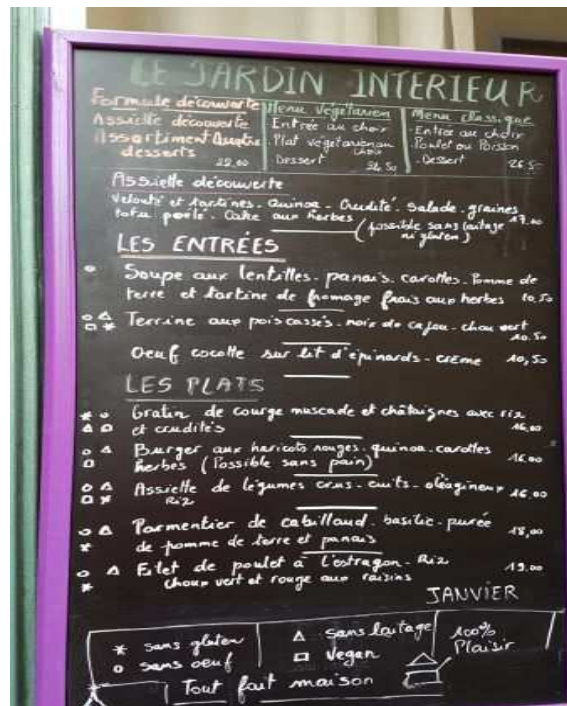 LE JARDIN INTERIEUR
Formule découverte
Assiette découverte
Assortiment Quatre
desserts
22.00
Menu Végétarien
Entrée au choix
Plat végétarien au
choix
Dessert 24.50
Menu Classique
- Entrée au choix
- Poulet ou Poisson
- Dessert 26.50
Assiette découverte
Velouté et tartines - Quinoa - Crudité - Salade - graines
tofu poêlé - Cake aux herbes 17.00
(possible sans laitage
ni gluten)
LES ENTRÉES
o Soupe aux lentilles - panais - carottes - Pomme de
terre et tartine de fromage frais aux herbes 10,50
o △ Terrine aux pois cassés - noix de cajou - chou vert
□ * 10.50
Oeuf cocotte sur lit d'épinards - crème 10,50
LES PLATS
* o Gratin de courge muscade et châtaignes avec riz
△ □ et crudités 16.00
o △ Burger aux haricots rouges - quinoa - carottes
□ herbes (Possible sans pain) 16.00
o △ Assiette de légumes crus - cuits - oléagineux 16.00
□ * Riz
o △ Parmentier de cabillaud - basilic - purée
* de pomme de terre et panais 18,00
o △ Filet de poulet à l'estragon - Riz 19.00
* choux vert et rouge aux raisins
JANVIER
* sans gluten
o sans oeuf
△ sans laitage
□ Vegan
100%
Plaisir
Tout fait maison